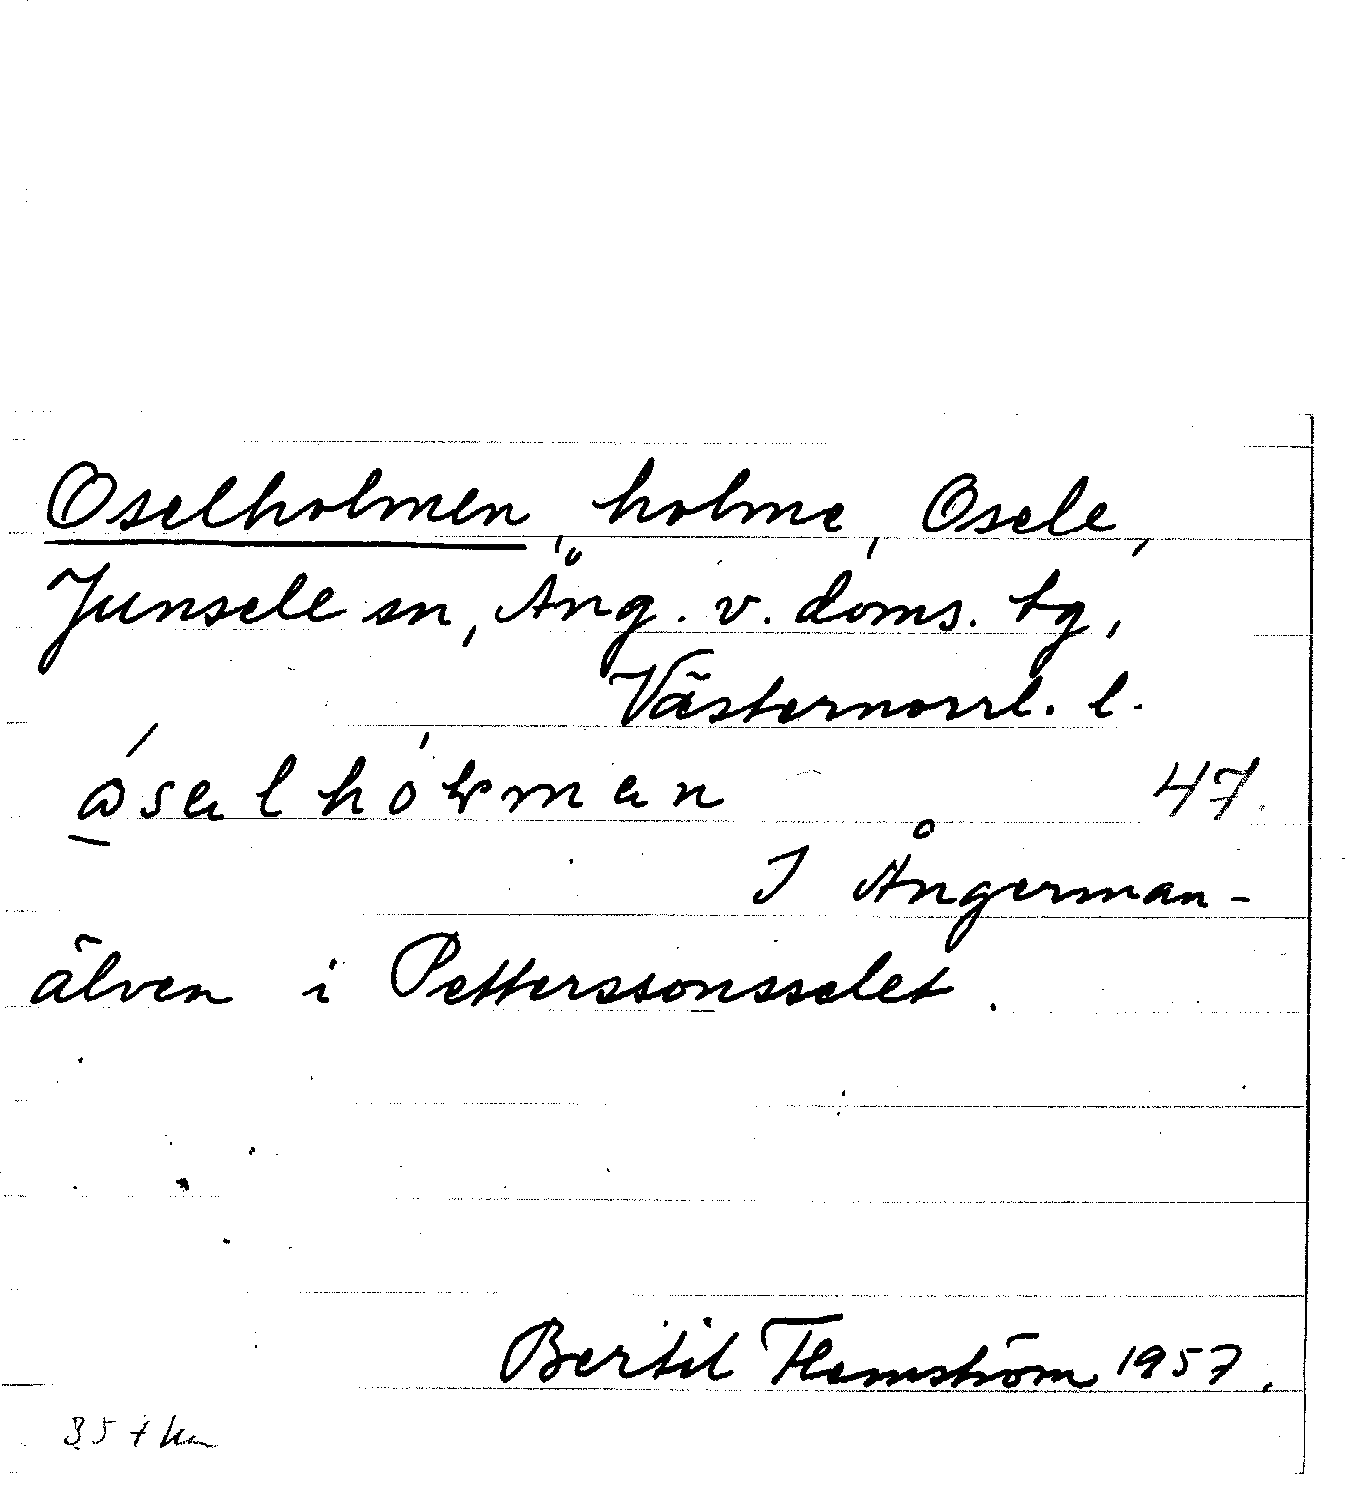 Oselholmen, holme, Osele,
Junsele sn, Ång. v. doms. tg,
Västernorrl. l.
47.
I Ångerman-
älven i Petterssonsselet.
Bertil Flemström 1957.